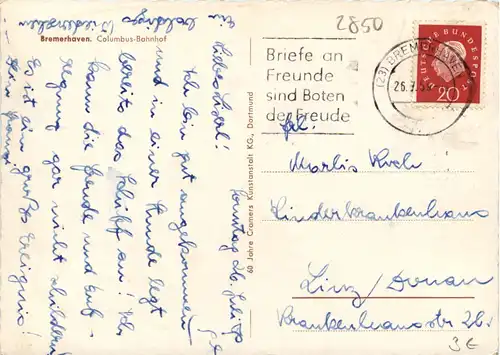 2850
Bremerhaven. Columbus-Bahnhof
Sonntag 26. Juli 59
Liebes Lisl!
Ich bin gut angekommen
und in einer Stunde legt
bereits das Schiff an! Ich
kann die Freude und Auf-
regung gar nicht schildern
Es ist ein großes Ereignis!
Auf
baldiges
Wiedersehen
Dein
60 Jahre Cramers Kunstanstalt KG., Dortmund
Briefe an
Freunde
sind Boten
der Freude
(23) BREMERHAVEN
26.7.59
DEUTSCHE BUNDESPOST
20
Frl.
Marlis Koch
Kinderkrankenhaus
Linz/Donau
Krankenhausstr 28.
3€